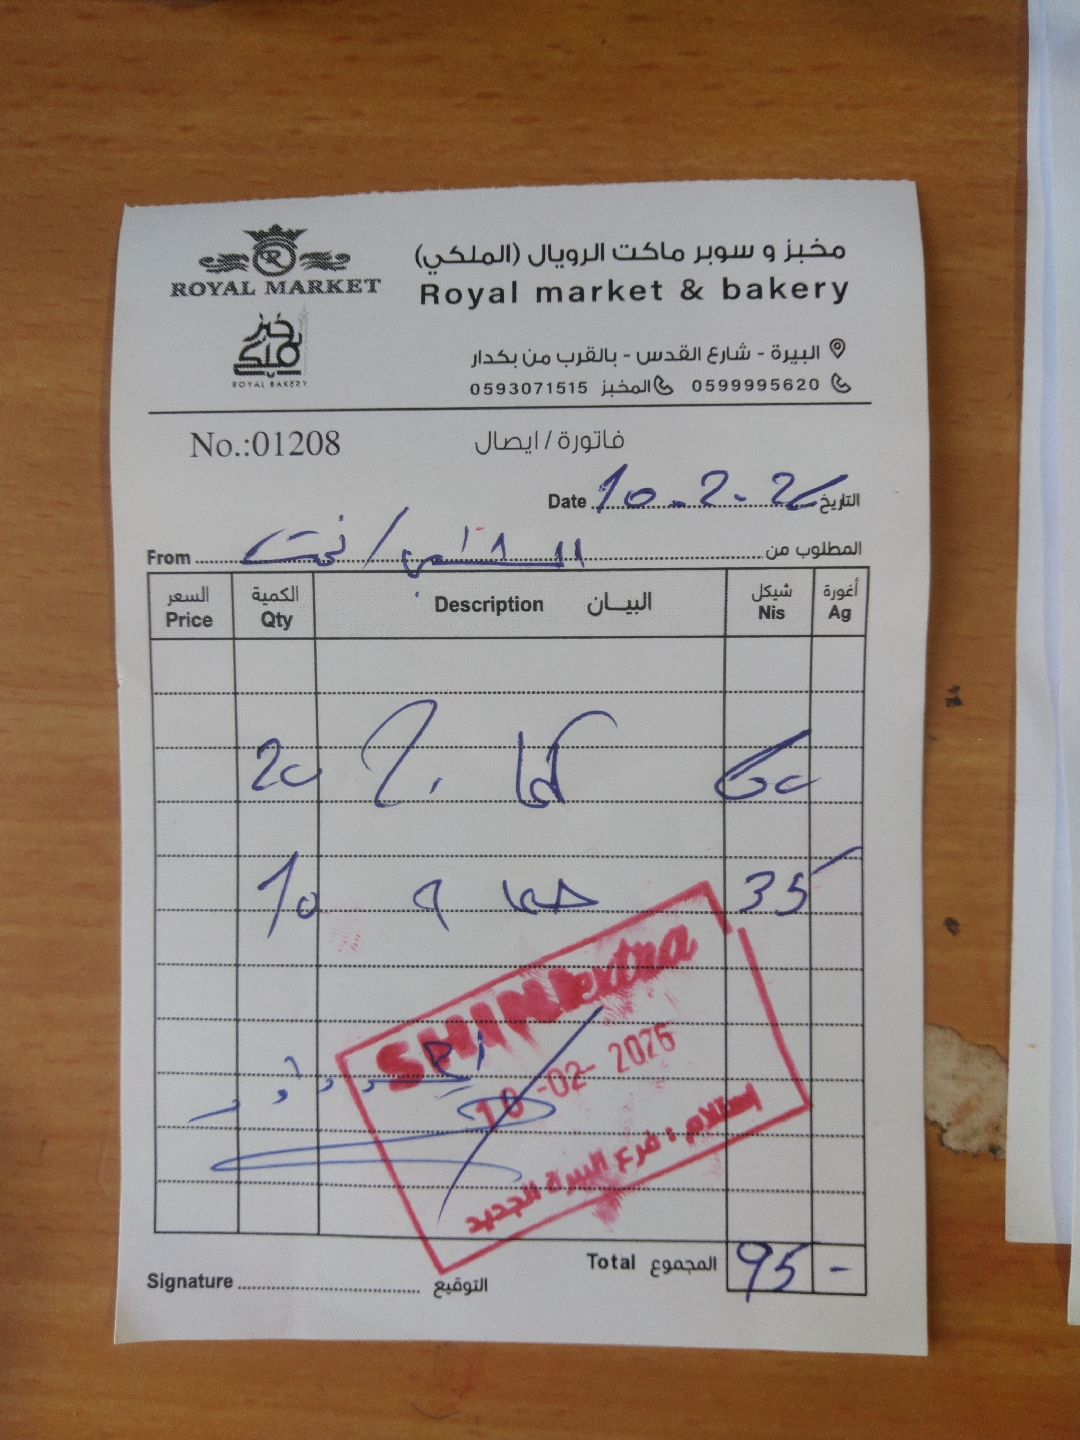 ROYAL MARKET
خبز
ملكي
ROYAL BAKERY
مخبز و سوبر ماكت الرويال (الملكي)
Royal market & bakery
البيرة - شارع القدس - بالقرب من بكدار
0599995620 المخبز 0593071515
No.:01208
فاتورة / ايصال
Date 10-2-26 التاريخ
From المطلوب من
السعر الكمية البيــان شيكل أغورة
Price Qty Description Nis Ag
20 60
10 35
SHINI extra
10-02-2026
إستلام : فرع البيرة الجديد
Total المجموع 95 -
Signature التوقيع